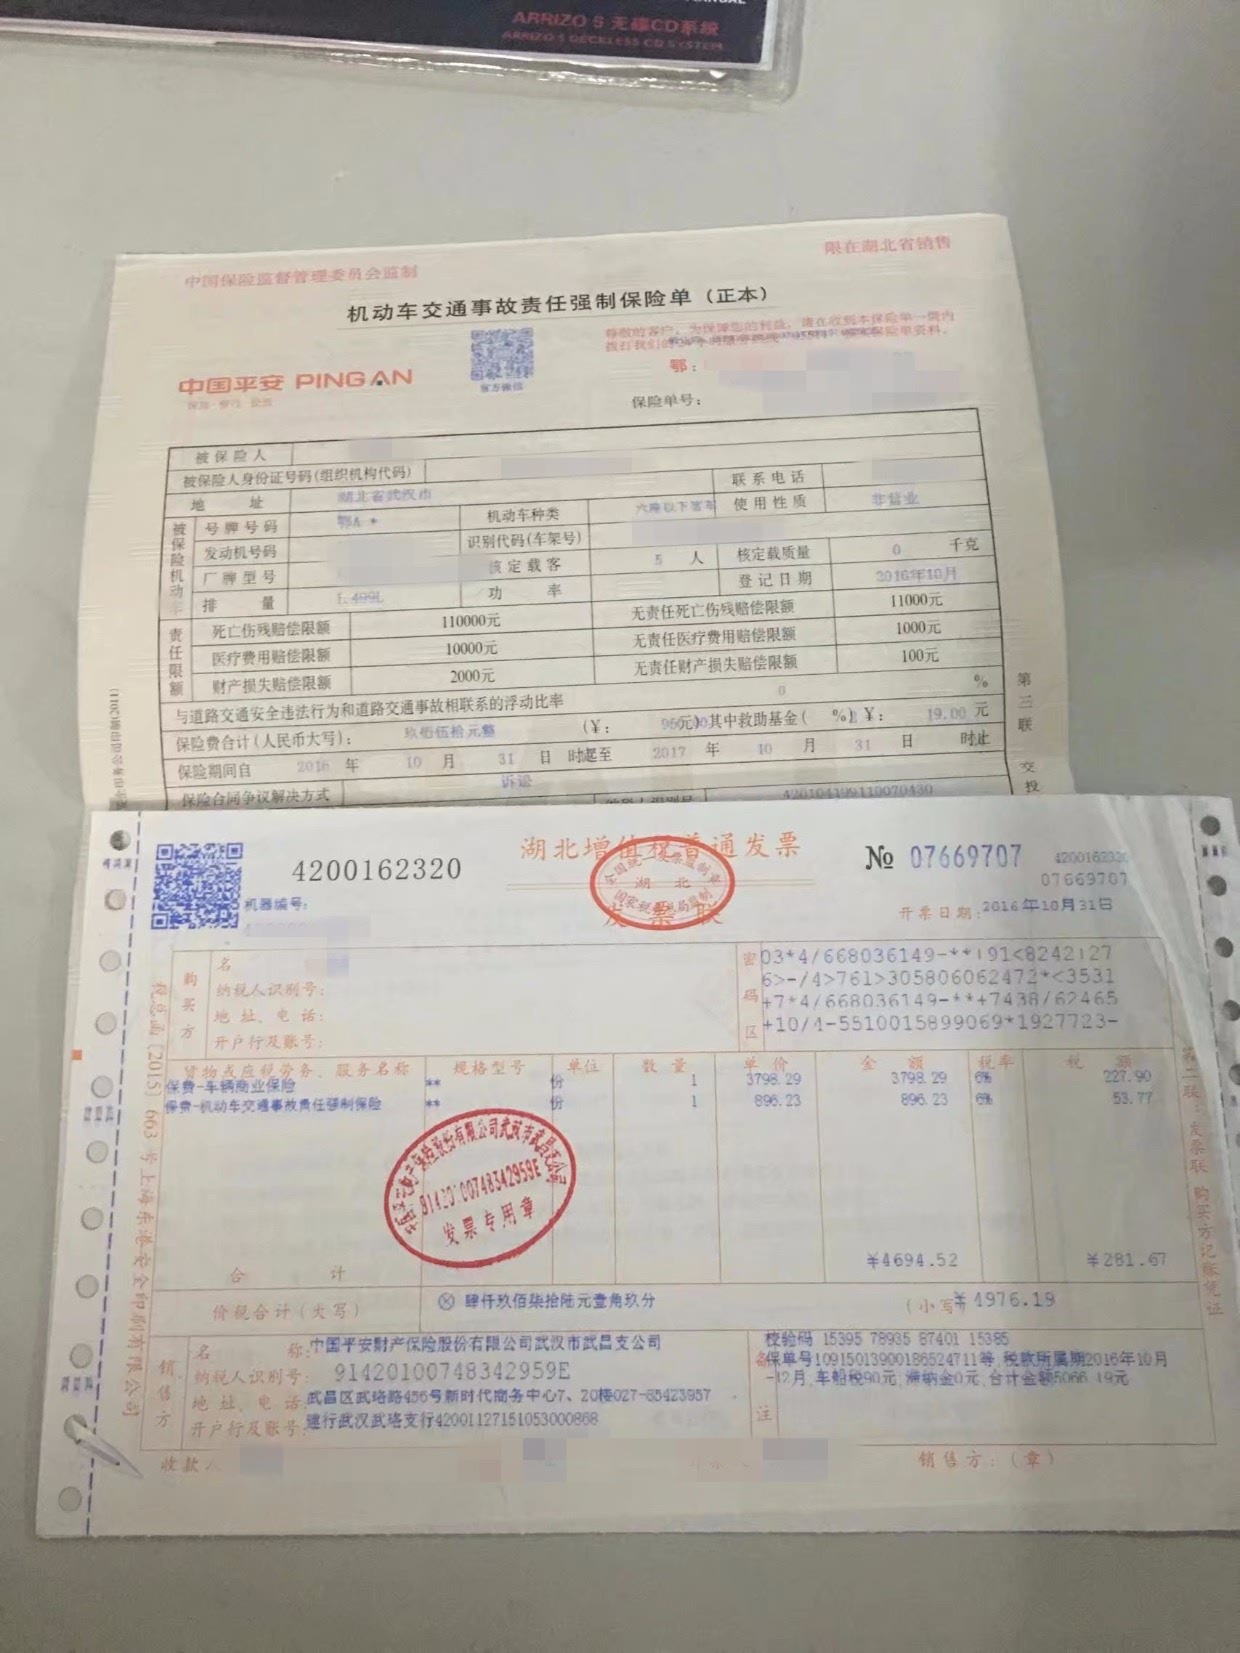 ARRIZO 5 无碟CD系统
ARRIZO 5 DECKLESS CD SYSTEM
中国保险监督管理委员会监制
限在湖北省销售
机动车交通事故责任强制保险单（正本）
尊敬的客户，为保障您的利益，请在收到本保险单一周内
官方微信
中国平安 PING AN
保险·银行·投资
鄂：
保险单号：
被保险人
被保险人身份证号码(组织机构代码)
联系电话
地 址 湖北省武汉市
使用性质 非营业
被保险机动车
号牌号码 鄂A *
机动车种类 六座以下客车
发动机号码
识别代码(车架号)
厂牌型号
核定载客 5 人
核定载质量 0 千克
排 量 1.499L
功 率
登记日期 2016年10月
责任限额
死亡伤残赔偿限额 110000元 无责任死亡伤残赔偿限额 11000元
医疗费用赔偿限额 10000元 无责任医疗费用赔偿限额 1000元
财产损失赔偿限额 2000元 无责任财产损失赔偿限额 100元
与道路交通安全违法行为和道路交通事故相联系的浮动比率 0 %
保险费合计(人民币大写)： 玖佰伍拾元整 (￥： 950.00元)其中救助基金( %)￥： 19.00 元
保险期间自 2016 年 10 月 31 日 时起至 2017 年 10 月 31 日 时止
保险合同争议解决方式 诉讼
420104199110070430
第三联 交投
4200162320
湖北增值税普通发票
发票联
全国统一发票监制章
湖 北
国家税务局监制
№ 07669707
4200162320
07669707
机器编号：
开票日期：2016年10月31日
购买方
名
纳税人识别号：
地 址、电 话：
开户行及账号：
密码区
03*4/668036149-**+91<8242+27
6>-/4>761>305806062472*<3531
+7*4/668036149-**+7438/62465
+10/4-5510015899069*1927723-
货物或应税劳务、服务名称 规格型号 单位 数 量 单 价 金 额 税率 税 额
保费-车辆商业保险 ** 份 1 3798.29 3798.29 6% 227.90
保费-机动车交通事故责任强制保险 ** 份 1 896.23 896.23 6% 53.77
91420100748342959E
发票专用章
合 计 ￥4694.52 ￥281.67
价税合计（大写） ⊗ 肆仟玖佰柒拾陆元壹角玖分 （小写）￥4976.19
销售方
名 称：中国平安财产保险股份有限公司武汉市武昌支公司
纳税人识别号：91420100748342959E
地 址、电 话：武昌区武珞路456号新时代商务中心7、20楼027-85423957
开户行及账号：建行武汉武珞支行42001127151053000868
备注
校验码 15395 78935 87401 15385
保单号10915013900186524711等,税款所属期2016年10月
-12月,车船税90元,滞纳金0元,合计金额5066.19元
收款人
销售方：（章）
税总函〔2015〕663号上海东港安全印刷有限公司
第二联：发票联 购买方记账凭证